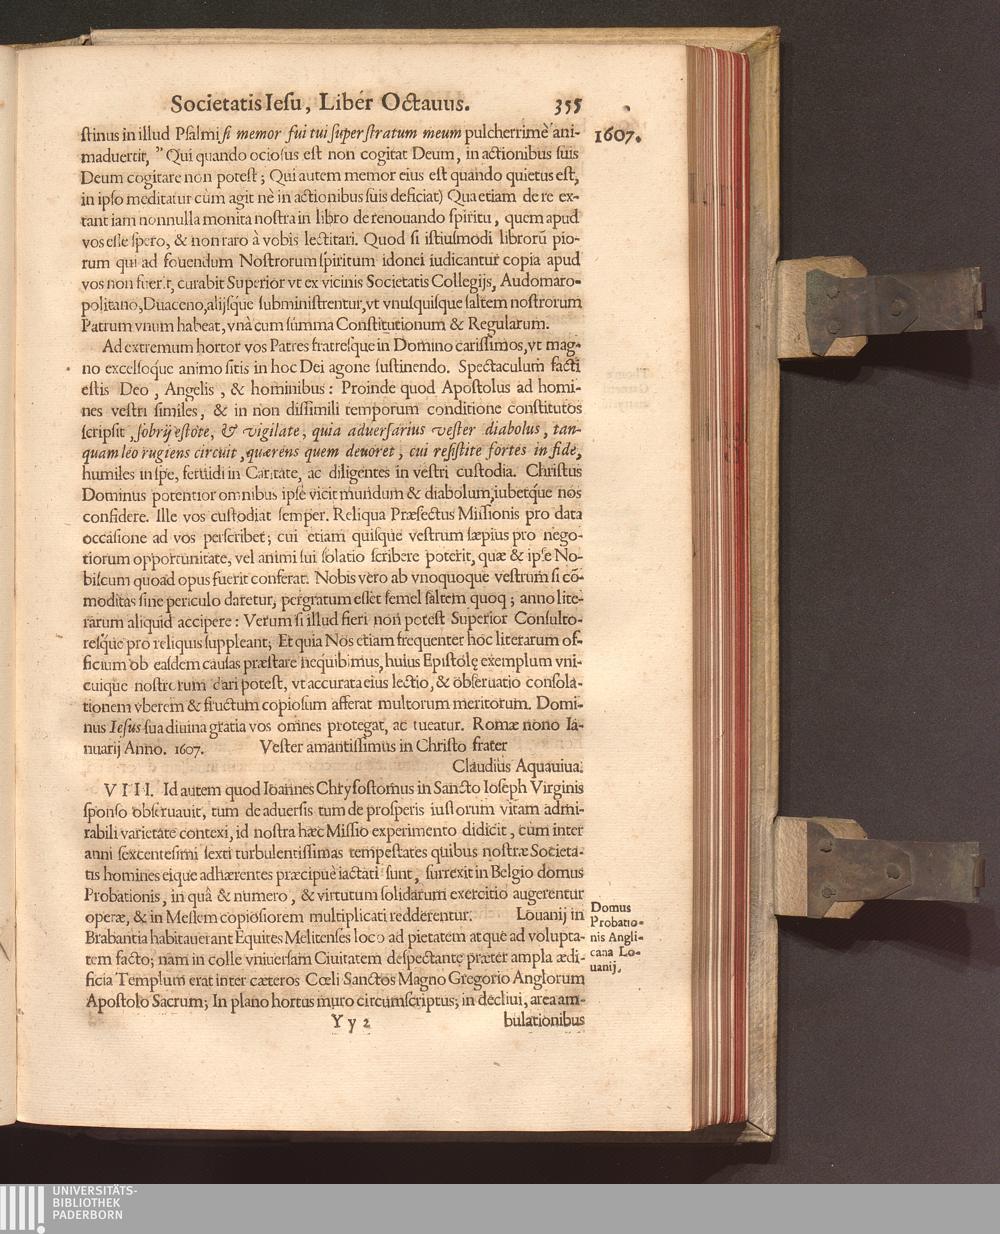 Societatis Iesu, Liber Octauus. 355
1607.
stinus in illud Psalmi si memor fui tui super stratum meum pulcherrimè ani-
maduertit, " Qui quando ociosus est non cogitat Deum, in actionibus suis
Deum cogitare non potest; Qui autem memor eius est quando quietus est,
in ipso meditatur cùm agit nè in actionibus suis deficiat) Qua etiam de re ex-
tant iam nonnulla monita nostra in libro de renouando spiritu, quem apud
vos esse spero, & non raro à vobis lectitari. Quod si istiusmodi librorũ pio-
rum qui ad fouendum Nostrorum spiritum idonei iudicantur copia apud
vos non fuerit, curabit Superior vt ex vicinis Societatis Collegijs, Audomaro-
politano, Duaceno, alijsque subministrentur, vt vnusquisque saltem nostrorum
Patrum vnum habeat, vnà cum summa Constitutionum & Regularum.
Ad extremum hortor vos Patres fratresque in Domino carissimos, vt mag-
no excelsoque animo sitis in hoc Dei agone sustinendo. Spectaculum facti
estis Deo, Angelis, & hominibus: Proinde quod Apostolus ad homi-
nes vestri similes, & in non dissimili temporum conditione constitutos
scripsit, sobrij estote, & vigilate, quia aduersarius vester diabolus, tan-
quam leo rugiens circuit, quærens quem deuoret, cui resistite fortes in fide,
humiles in spe, feruidi in Caritate, ac diligentes in vestri custodia. Christus
Dominus potentior omnibus ipse vicit mundum & diabolum, iubetque nos
confidere. Ille vos custodiat semper. Reliqua Præfectus Missionis pro data
occasione ad vos perscribet; cui etiam quisque vestrum sæpius pro nego-
tiorum opportunitate, vel animi sui solatio scribere poterit, quæ & ipse No-
biscum quoad opus fuerit conferat. Nobis vero ab vnoquoque vestrum si cõ-
moditas sine periculo daretur, pergratum esset semel saltem quoq; anno lite-
rarum aliquid accipere: Verum si illud fieri non potest Superior Consulto-
resque pro reliquis suppleant; Et quia Nos etiam frequenter hoc literarum of-
ficium ob easdem causas præstare nequibimus, huius Epistolę exemplum vni-
cuique nostrorum dari potest, vt accurata eius lectio, & obseruatio consola-
tionem vberem & fructum copiosum afferat multorum meritorum. Domi-
nus Iesus sua diuina gratia vos omnes protegat, ac tueatur. Romæ nono Ia-
nuarij Anno. 1607. Vester amantissimus in Christo frater
Claudius Aquauiua.
VIII. Id autem quod Ioannes Chrysostomus in Sancto Ioseph Virginis
sponso obseruauit, tum de aduersis tum de prosperis iustorum vitam admi-
rabili varietate contexi, id nostra hæc Missio experimento didicit, cùm inter
anni sexcentesimi sexti turbulentissimas tempestates quibus nostræ Societa-
tis homines eique adhærentes præcipuè iactati sunt, surrexit in Belgio domus
Probationis, in quâ & numero, & virtutum solidarum exercitio augerentur
operæ, & in Messem copiosiorem multiplicati redderentur. Louanij in
Brabantia habitauerant Equites Melitenses loco ad pietatem atque ad volupta-
tem facto; nam in colle vniuersam Ciuitatem despectante præter ampla ædi-
ficia Templum erat inter cæteros Cœli Sanctos Magno Gregorio Anglorum
Apostolo Sacrum; In plano hortus muro circumscriptus; in decliui, area am-
Domus
Probatio-
nis Angli-
cana Lo-
uanij.
Yy 2 bulationibus
UNIVERSITÄTS-
BIBLIOTHEK
PADERBORN